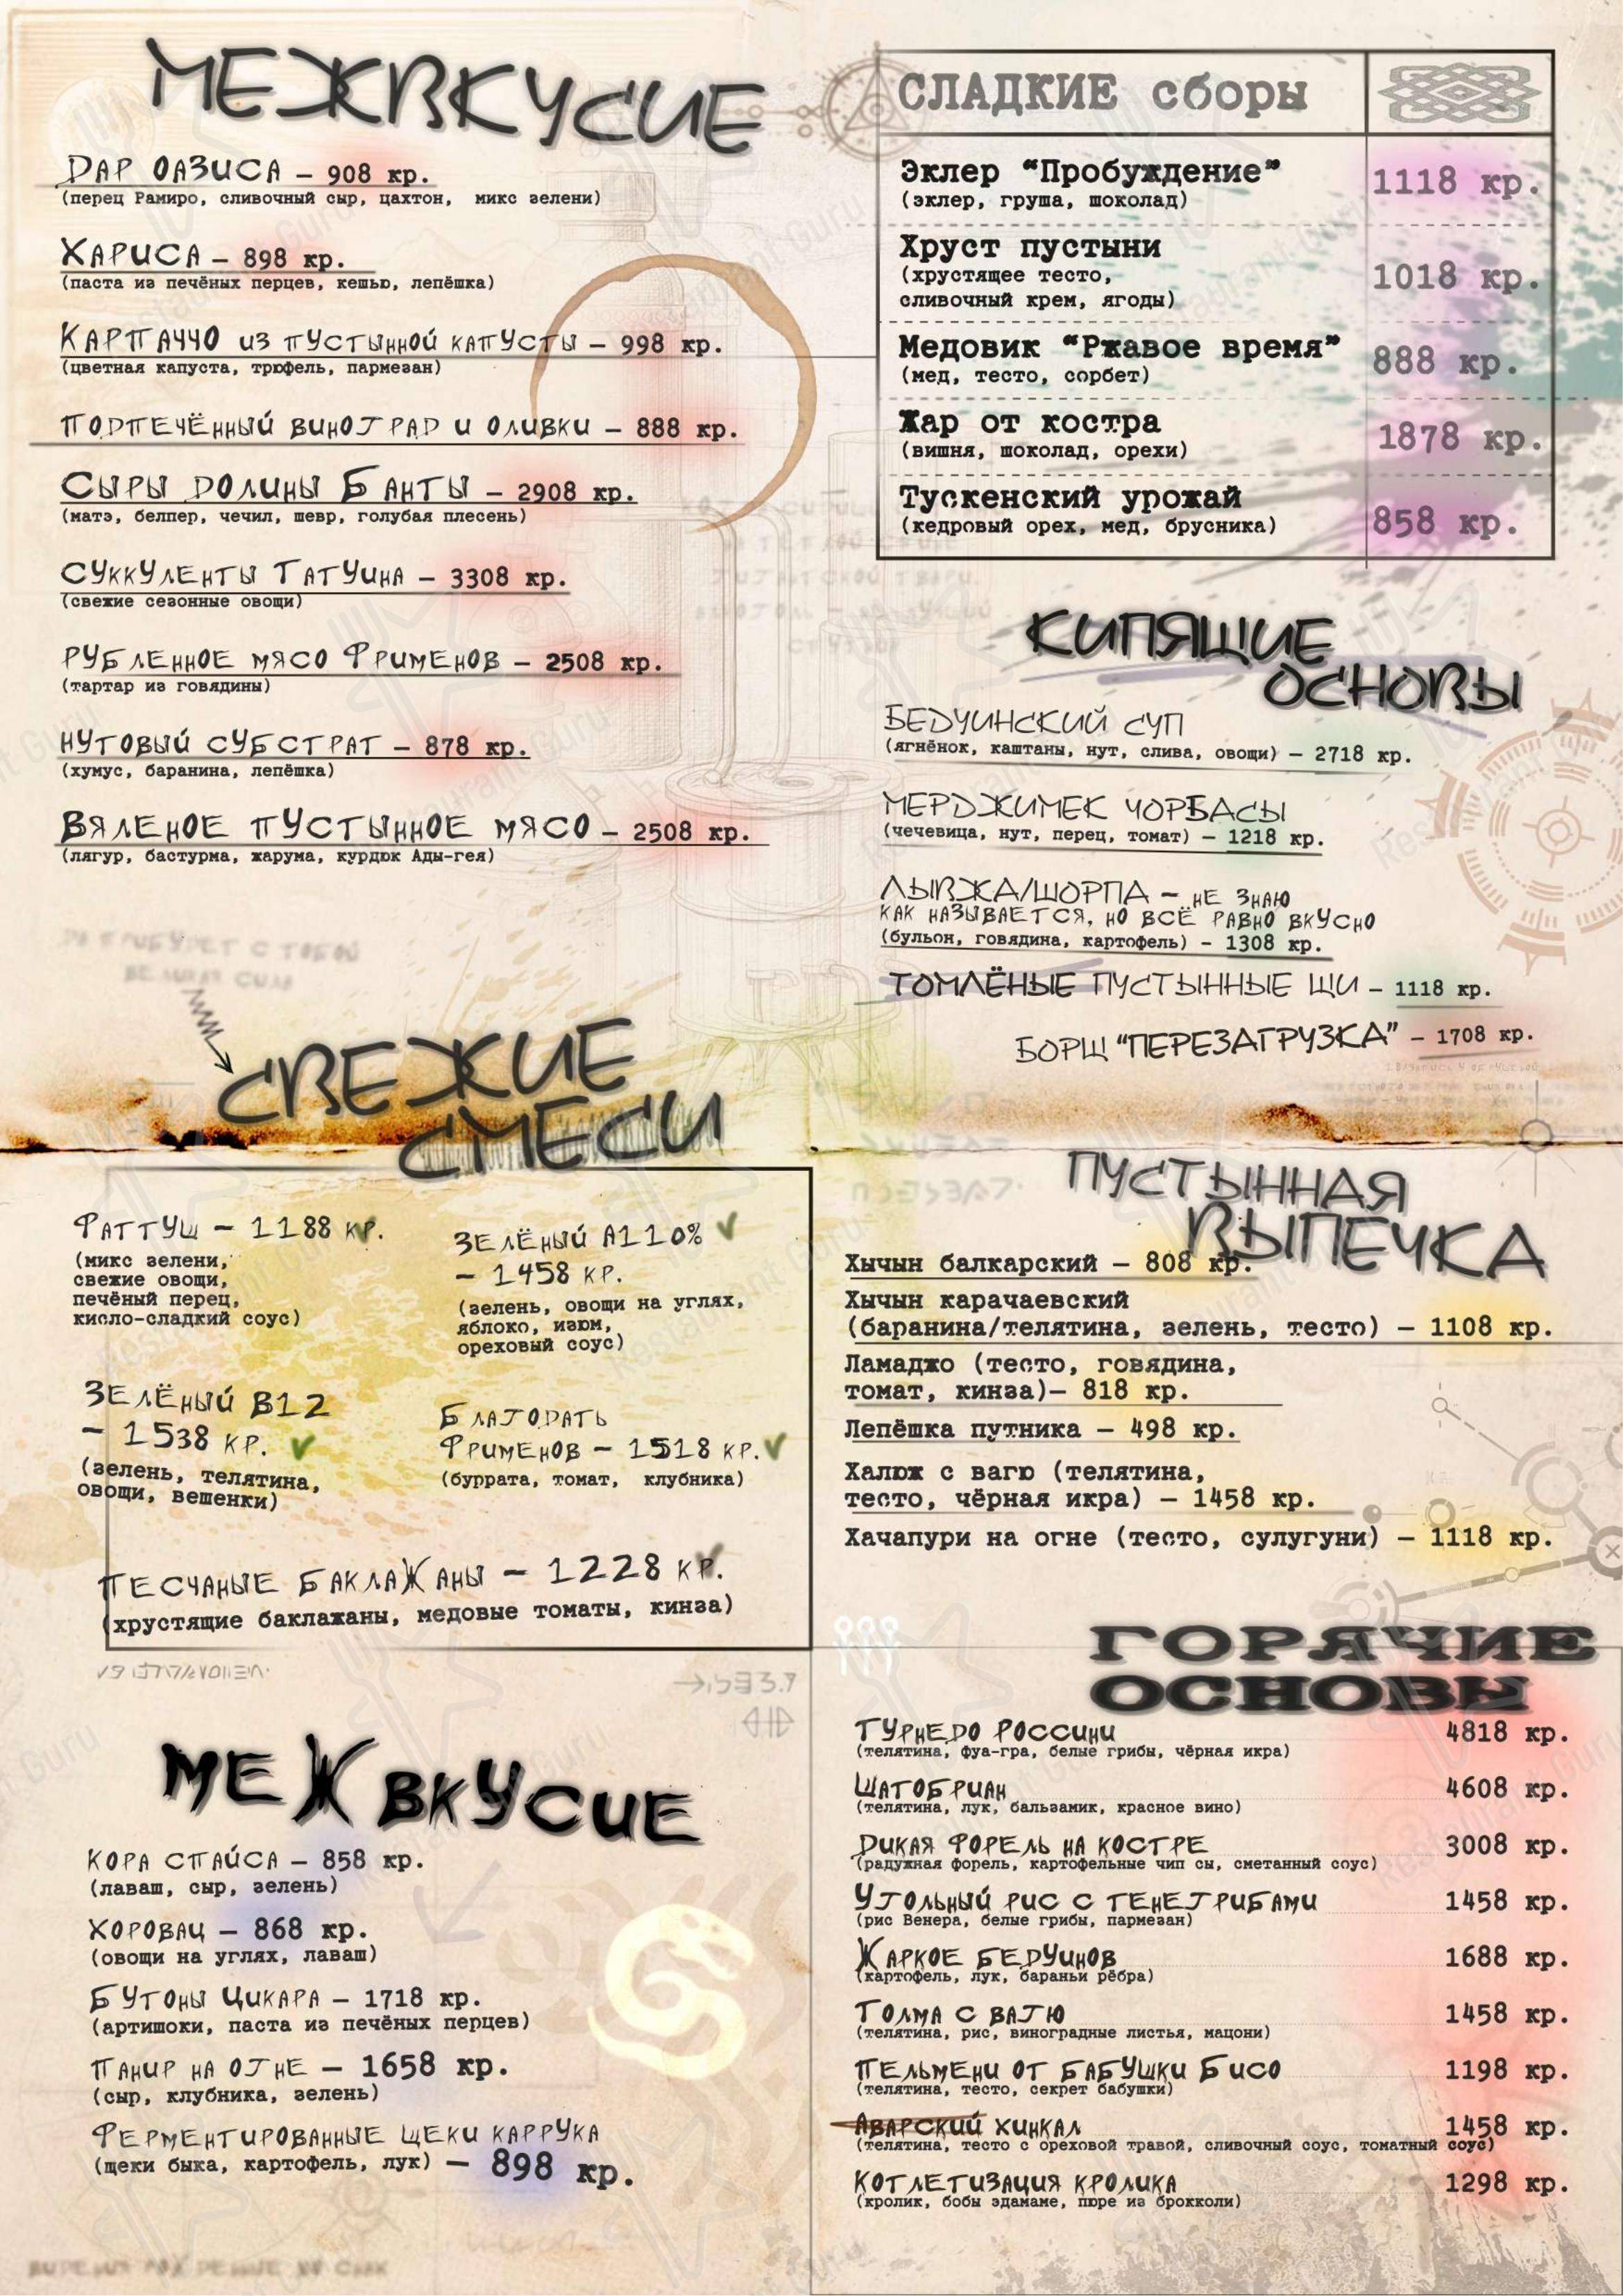 МЕЖВКУСИЕ
ДАР ОАЗИСА – 908 кр.
(перец Рамиро, сливочный сыр, цахтон, микс зелени)
ХАРИСА – 898 кр.
(паста из печёных перцев, кешью, лепёшка)
КАРПАЧЧО ИЗ ПУСТЫННОЙ КАПУСТЫ – 998 кр.
(цветная капуста, трюфель, пармезан)
ПОДПЕЧЁННЫЙ ВИНОГРАД И ОЛИВКИ – 888 кр.
СЫРЫ ДОЛИНЫ БАНТЫ – 2908 кр.
(матэ, белпер, чечил, шевр, голубая плесень)
СУККУЛЕНТЫ ТАТУИНА – 3308 кр.
(свежие сезонные овощи)
РУБЛЕННОЕ МЯСО ФРИМЕНОВ – 2508 кр.
(тартар из говядины)
НУТОВЫЙ СУБСТРАТ – 878 кр.
(хумус, баранина, лепёшка)
ВЯЛЕНОЕ ПУСТЫННОЕ МЯСО – 2508 кр.
(лягур, бастурма, жарума, курдюк Ады-гея)
СЛАДКИЕ сборы
Эклер “Пробуждение” 1118 кр.
(эклер, груша, шоколад)
Хруст пустыни
(хрустящее тесто, 1018 кр.
сливочный крем, ягоды)
Медовик “Ржавое время” 888 кр.
(мед, тесто, сорбет)
Жар от костра 1878 кр.
(вишня, шоколад, орехи)
Тускенский урожай
(кедровый орех, мед, брусника) 858 кр.
КИПЯЩИЕ
ОСНОВЫ
БЕДУИНСКИЙ СУП
(ягнёнок, каштаны, нут, слива, овощи) – 2718 кр.
МЕРДЖИМЕК ЧОРБАСЫ
(чечевица, нут, перец, томат) – 1218 кр.
ЛЫВЖА/ШОРПА – НЕ ЗНАЮ
КАК НАЗЫВАЕТСЯ, НО ВСЁ РАВНО ВКУСНО
(бульон, говядина, картофель) – 1308 кр.
ТОМЛЁНЫЕ ПУСТЫННЫЕ ЩИ – 1118 кр.
БОРЩ “ПЕРЕЗАГРУЗКА” – 1708 кр.
ДА ПРИБУДЕТ С ТОБОЙ
ВЕЛИКАЯ СИЛА
СВЕЖИЕ
СМЕСИ
ФАТТУШ – 1188 КР.
(микс зелени,
свежие овощи,
печёный перец,
кисло-сладкий соус)
ЗЕЛЁНЫЙ А110%
– 1458 КР.
(зелень, овощи на углях,
яблоко, изюм,
ореховый соус)
ЗЕЛЁНЫЙ В12
– 1538 КР.
(зелень, телятина,
овощи, вешенки)
БЛАГОДАТЬ
ФРИМЕНОВ – 1518 КР.
(буррата, томат, клубника)
ПЕСЧАНЫЕ БАКЛАЖАНЫ – 1228 КР.
(хрустящие баклажаны, медовые томаты, кинза)
ПУСТЫННАЯ
ВЫПЕЧКА
Хычын балкарский – 808 кр.
Хычын карачаевский
(баранина/телятина, зелень, тесто) – 1108 кр.
Ламаджо (тесто, говядина,
томат, кинза)– 818 кр.
Лепёшка путника – 498 кр.
Халюж с вагю (телятина,
тесто, чёрная икра) – 1458 кр.
Хачапури на огне (тесто, сулугуни) – 1118 кр.
МЕЖВКУСИЕ
КОРА СПАЙСА – 858 кр.
(лаваш, сыр, зелень)
ХОРОВАЦ – 868 кр.
(овощи на углях, лаваш)
БУТОНЫ ЦИКАРА – 1718 кр.
(артишоки, паста из печёных перцев)
ПАНИР НА ОГНЕ – 1658 кр.
(сыр, клубника, зелень)
ФЕРМЕНТИРОВАННЫЕ ЩЕКИ КАРРУКА
(щеки быка, картофель, лук) – 898 кр.
ГОРЯЧИЕ
ОСНОВЫ
ТУРНЕДО РОССИНИ 4818 кр.
(телятина, фуа-гра, белые грибы, чёрная икра)
ШАТОБРИАН 4608 кр.
(телятина, лук, бальзамик, красное вино)
ДИКАЯ ФОРЕЛЬ НА КОСТРЕ 3008 кр.
(радужная форель, картофельные чип сы, сметанный соус)
УГОЛЬНЫЙ РИС С ГЕНЕГРИБАМИ 1458 кр.
(рис Венера, белые грибы, пармезан)
ЖАРКОЕ БЕДУИНОВ 1688 кр.
(картофель, лук, бараньи рёбра)
ТОЛМА С ВАГЮ 1458 кр.
(телятина, рис, виноградные листья, мацони)
ПЕЛЬМЕНИ ОТ БАБУШКИ БИСО 1198 кр.
(телятина, тесто, секрет бабушки)
АВАРСКИЙ ХИНКАЛ 1458 кр.
(телятина, тесто с ореховой травой, сливочный соус, томатный соус)
КОТЛЕТИЗАЦИЯ КРОЛИКА 1298 кр.
(кролик, бобы эдамаме, пюре из брокколи)